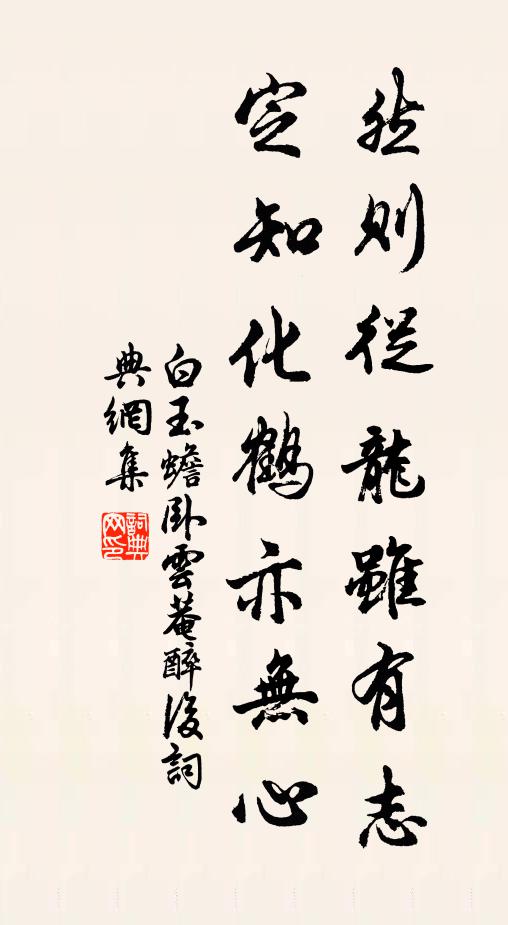 然則從龍雖有志
定知化鶴亦無心
白玉蟾臥雲菴醉後詞
典網集
詞典
网印